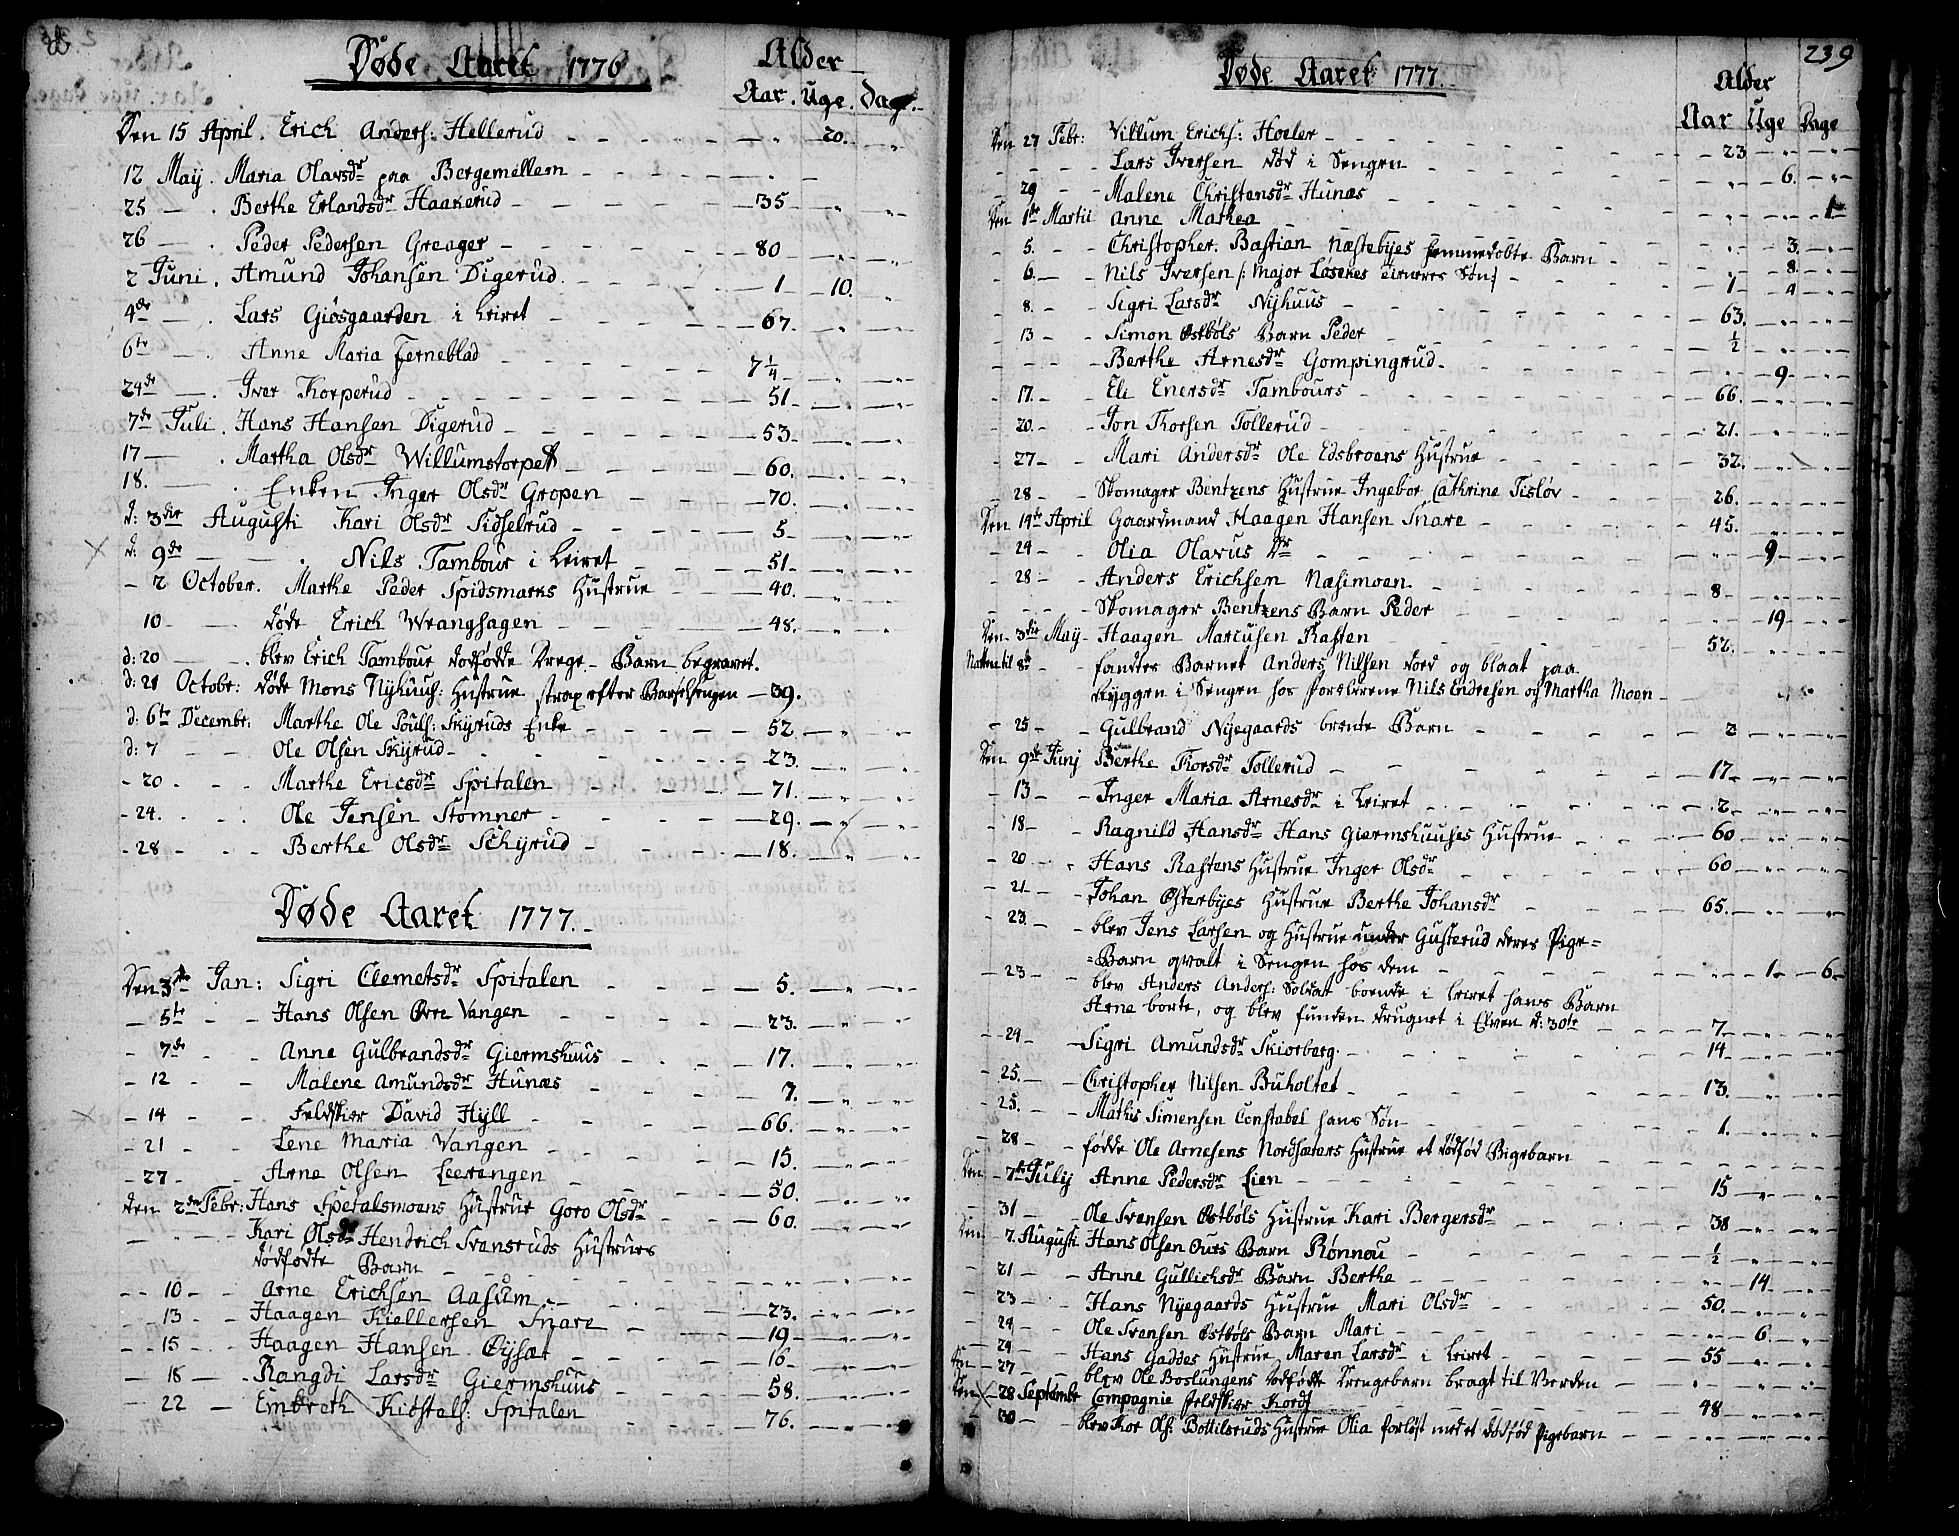 Døde Aaret 1776
Alder
Aar. Uge. Dage.
Den 15 April. Erich Anders: Hellerud - - 20. -
12 May. Maria Olavsdr paa Bergemellem - -
25 - . Berthe Erlandsdr Haakerud - 35 - -
26 - . Peder Pedersen Greager - 80 - -
2 Juni. Amund Johansen Digerud - 1 - 10. -
4de - . Lars Giøsgaarden i Leiret - 67. - -
6te - . Anne Maria Ferneblad - 7 1/4 - -
24de - . Iver Korperud - 51 - -
7de Juli. Hans Hansen Digerud - 53 - -
17 - . Martha Olsdr Willumstorpet - 60. - -
18. - . Enken Inger Olsdr Gropen - 70. - -
d: 3die Augusti Kari Olsdr Sidselrud - 5 - -
d: 9de - . Nils Tambour i Leiret - 51 - -
- 2 October. Marthe Peder Spidsmarks Hustrue - 40. - -
10 - døde Erich Wranghagen - 48. - -
d: 20 - . blev Erich Tambour dødfødde Drege- Barn begravet.
d: 21 Octobr: døde Mons Nyhuus: Hustrue strax efter Barselsengen - 39.
d: 6te Decembr: Marthe Ole Pouls: Skyruds Enke - 52. - -
d: 7 - - Ole Olsen Skyrud - 23. - -
- 20 - - Marthe Ericsdr Spitalen - 71. - -
- 24. - Ole Jensen Stomner - 29. - -
- 28 - - Berthe Olsdr Schyrud - 18. - -
Døde Aaret 1777.
Den 3die Jan: Sigri Clemetsdr Spitalen - 5. - -
- 5te - - Hans Olsen Øvre Vangen - 23. - -
- 7de - - Anne Gulbrandsdr Giermshuus - 17. - -
- 12 - - Malene Amundsdr Hunæs - 7. - -
- 14 - - Feldskier David Hyll - 66. - -
- 21 - - Lene Maria Vangen - 15. - -
- 27 - - Arne Olsen Leerengen - 50. - -
den 2den Febr: Hans Spetalsmoens Hustrue Goro Olsdr - 60. - -
- - - Kari Olsdr Hendrich Svensruds Hustrues
dødfødte Barn - - -
- 10 - - Arne Erichsen Aasum - 23. - -
- 13 - Haagen Kiellersen Snare - 19 - -
- 15 - Haagen Hansen Øysæt - 16 - -
- 18 - . Rangdi Larsdr Giermshuus - 58. - -
- 22 - Embreth Kidstels: Spitalen - 76. - -
239
Døde Aaret 1777.
Alder
Aar Uge Dage
Den 27 Febr: Villum Erichs: Hoeler - 23 - -
- - - Lars Iversen død i Sengen - 6. -
- 29 - - Malene Christensdr Hunæs - -
Den 1te Martii Anne Mathea - - 1
- 5. - - Christopher Bastian Næstebyes hemmedøbte Barn - 3. -
- 6. - - Nils Iversen /: Major Løsekes Tieneres Søn :/ - 8. -
- 8. - - Sigri Larsdr Nyhuus - 1 - 4 -
- 13 - - Simon Østbøls Barn Peder - 63. - -
- - - Berthe Arnesdr Gompingrud - 1/2 - -
- 17. - - Eli Enersdr Tambours - 9 -
- 20. - - Jon Thorsen Tollerud - 66. - -
- 27 - - Mari Andersdr Ole Edsbroens Hustrue - 21. - -
- 28 - - Skomager Bentzens Hustrue Ingebor Cathrine Tisløv - 32. - -
Den 14de April Gaardmand Haagen Hansen Snare - 26. - -
- 24 - - Olia Olavus Dr - 45. - -
- 28 - - Anders Erichsen Næsimoen - 9 -
- - - Skomager Bentzens Barn Peder - 8 - -
Den 3die May - Haagen Marcusen Rasten - 19 -
Natten til 8de - fandtes Barnet Anders Nilsen død og blaat paa 52. - -
Ryggen i Sengen hos Forældrene Nils Endresen og Martha Moen -
- 25 - - Gulbrand Nyegaards brente Barn - 2 - -
Den 9de Junj Berthe Thorsdr Tollerud - 17. - -
- 13 - - Inger Maria Arnesdr i Leiret - 2 - -
- 18 - - Ragnild Hansdr Hans Giermshuuses Hustrue - 60 - -
- 20 - - Hans Rastens Hustrue Inger Olsdr - 60 - -
- 21 - - Johan Østerbyes Hustrue Berthe Johansdr - 65. - -
- 23 - - blev Jens Larsen og Hustrue under Gusterud deres Pige=
=Barn qvalt i Sengen hos dem - - 1 - 6
- 23 - - blev Anders Anders: Soldat boende i Leiret hans Barn
Arne borte, og blev funden drugnet i Elven d: 30te - 7 - -
- 24 - - Sigri Amundsdr Skiorberg - 14 - -
- 25. - - Christopher Nilsen Buholtet - 13. - -
- 25. - - Mathis Simensen Constabel hans Søn - 1. - -
- 28 - - fødde Ole Arnesens Nordsæters Hustrue et dødfød Pigebarn - -
Den - 7de Julij Anne Pedersdr Lien - 15 - -
- 31 - Ole Svensen Østbøls Hustrue Kari Bergersdr - 38 - -
Den 7. Augusti Hans Olsen Ours Barn Rønnou - 1/2 - -
- 21 - - Anne Gullichsdr Barn Berthe - 14 -
- 23 - - Hans Nyegaards Hustrue Mari Olsdr - 50. - -
- 24 - - Ole Svensen Østbøls Barn Mari - 6 -
- 24 - - Hans Gaddes Hustrue Maren Larsdr i Leiret - 55 - -
Den - 27 - blev Ole Boslungens dødfødte Drengebarn bragt til Verden - -
Den - 28 Septembr Compagnie Feldskier Kordt - 48 - -
- 30 - - blev Tor Ols: Bottilsruds Hustrue Olia forløst med et dødfød Pigebarn - -